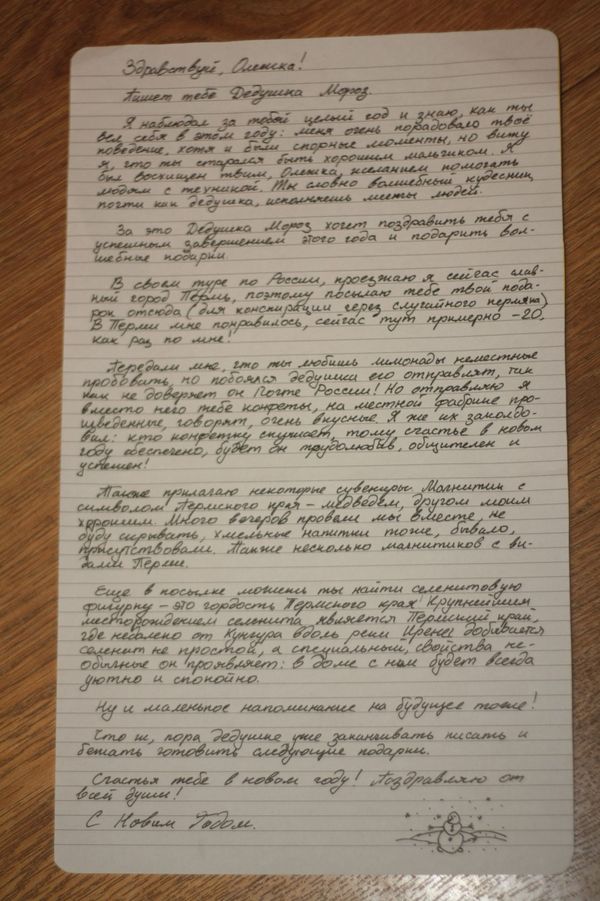 Здравствуй, Олежка!
Пишет тебе Дедушка Мороз.
Я наблюдал за тобой целый год и знаю, как ты
вел себя в этом году: меня очень порадовало твоё
поведение, хотя и были спорные моменты, но вижу
я, что ты старался быть хорошим мальчиком. Я
был восхищен твоим, Олежка, желанием помогать
людям с техникой. Ты словно волшебный кудесник,
почти как дедушка, исполняешь мечты людей.
За это Дедушка Мороз хочет поздравить тебя с
успешным завершением этого года и подарить вол-
шебные подарки.
В своем туре по России, проезжаю я сейчас слав-
ный город Пермь, поэтому посылаю тебе твой пода-
рок отсюда (для конспирации через случайного пермяка).
В Перми мне понравилось, сейчас тут примерно -20,
как раз по мне!
Передали мне, что ты любишь лимонады неместные
пробовать, но побоялся дедушка его отправлять, так
как не доверяет он Почте России! Но отправляю я
вместо него тебе конфеты, на местной фабрике про-
изведенные, говорят, очень вкусные. Я же их заколдо-
вал: кто конфетку скушает, тому счастье в новом
году обеспечено, будет он трудолюбив, общителен и
успешен!
Также прилагаю некоторые сувениры. Магнитик с
символом Пермского края - медведем, другом моим
хорошим. Много вечеров провели мы вместе, не
буду скрывать, хмельные напитки тоже, бывало,
присутствовали. Также несколько магнитиков с ви-
дами Перми.
Еще в посылке можешь ты найти селенитовую
фигурку - это гордость Пермского края! Крупнейшим
месторождением селенита является Пермский край,
где недалеко от Кунгура вдоль реки Ирени добывается
селенит не простой, а специальный, свойства не-
обычные он проявляет: в доме с ним будет всегда
уютно и спокойно.
Ну и маленькое напоминание на будущее тоже!
Что ж, пора дедушке уже заканчивать писать и
бежать готовить следующие подарки.
Счастья тебе в новом году! Поздравляю от
всей души!
С Новым Годом.